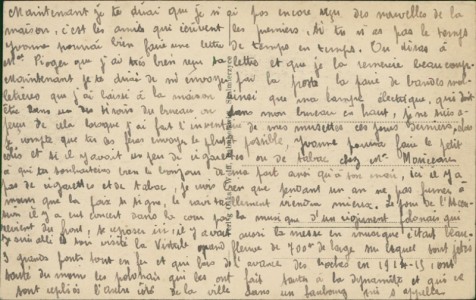 Maintenant je te dirai que je n'ai pas encore reçu des nouvelles de la
maison, c'est les amis qui écrivent les premiers. Si tu n'as pas le temps
Yvonne pourrait bien faire une lettre de temps en temps. Tu diras à
Mme Pioger que j'ai très bien reçu sa lettre et que je la remercie beaucoup.
Maintenant je te dirai de m'envoyer par la poste la paire de bandes mol-
letières que j'ai laissé à la maison ainsi que ma lampe électrique, qui doit
être dans un des tiroirs du bureau ou dans mon bureau en haut, je me suis a-
perçu de cela lorsque j'ai fait l'inventaire de mes musettes ces jours derniers,
je compte que tu as fais envoyer le plus possible, Yvonne pourra faire le petit
colis et si il y avait un peu de cigarettes ou de tabac chez Mr
à qui tu souhaiteras bien le bonjour de ma part ainsi qu'à ici il y a
pas de cigarettes et de tabac, je crois bien que pendant un an ne pas fumer à
moins que la paix se signe, le ravitaillement viendra mieux. Le jour de
il y a eut concert dans la cour par la musique d'un régiment polonais qui
revient du front, se reposer ici, il y avait aussi la messe en musique c'était beau.
Je suis allé voir visité la Vistule grand fleuve de 700m de large sur lequel sont jetés
3 grands ponts tout en fer et qui lors de l'avance des boches en 1914-15 ont
sauté du moins les polonais qui les ont fait sauter à la dynamite et qui se
sont repliés l'autre côté de la ville dans un faubourg qui s'appelle